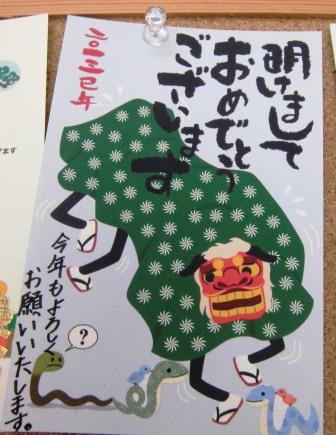 明けまして
おめでとう
ございます
二〇一三 巳年
今年もよろしく
お願いいたします。
?
げます